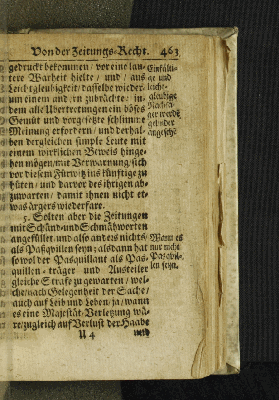 Von der Zeitungs-Recht. 463
gedruckt bekommen / vor eine lau-
tere Warheit hielte / und / aus
Leichtgleubigkeit / dasselbe wieder
um einem und ern zubrächte: in
dem alle Übertretungen ein böses
Gemüt und vorgesetzte schlimme
Meinung erfordern / und derhal-
ben dergleichen simple Leute mit
einem wirklichen Beweis hinge-
hen mögen / mit Verwarnung / sich
vor diesem Fürwitz ins künftige zu
hüten / und darvor des ihrigen ab-
zuwarten / damit ihnen nicht et-
was ärgers wiederfare.
5. Solten aber die Zeitungen
mit Schänd- und Schmähworten
angefüllet und also anders nichts /
als Pasqvillen seyn; alsdann hat
so wol der Pasquillant als Pas-
quillen-träger und Austeiler
gleiche Strafe zugewarten / wel-
che / nach Gelegenheit der Sache /
auch auf Leib und Leben / ja / wann
es eine Majestät-Verletzung wä-
re / zugleich auf Verlust der Haabe
Uu 4
und
Einfälti-
ge und
leicht-
gleubige
werden
gelinder
angesehē
Wann es
nur nicht
Pasqvil-
len seyn.